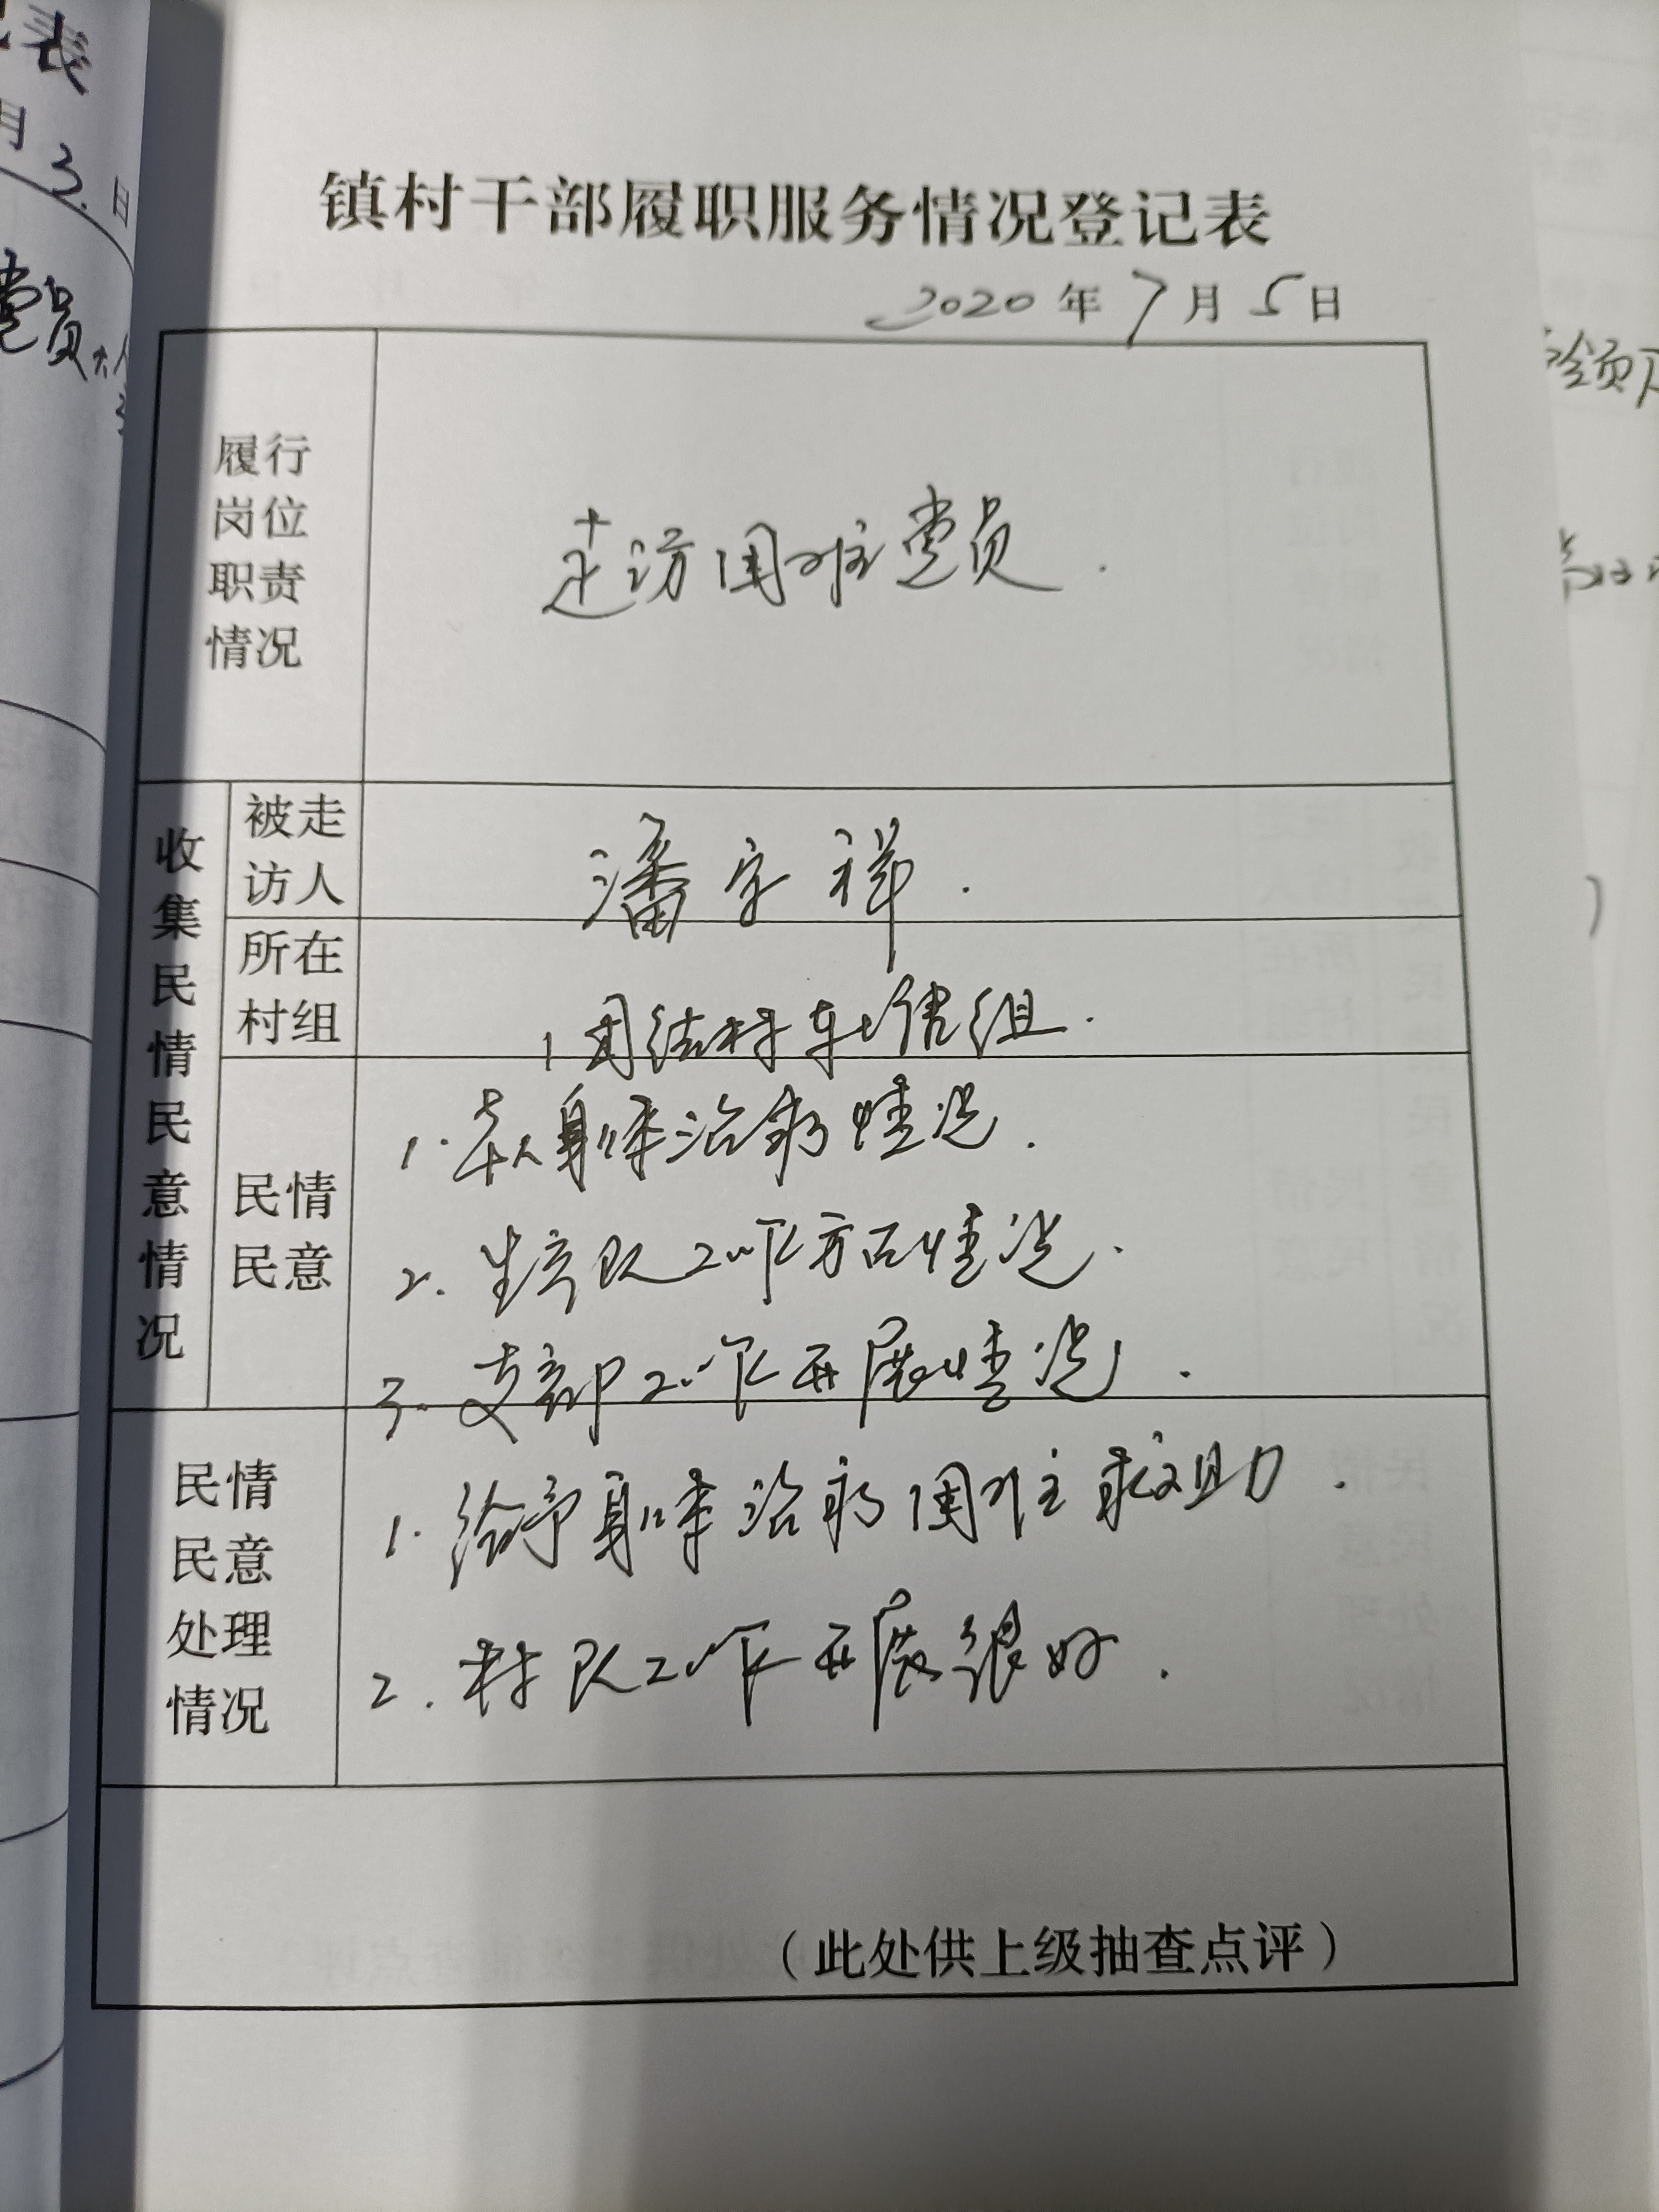 镇村干部履职服务情况登记表
2020年7月5日
履行
岗位
职责
情况
走访困难党员.
收集民情民意情况
被走
访人
潘字祥.
所在
村组
团结村车佬组.
民情
民意
1.本人身体治病情况.
2.生产队工作方面情况.
3.支部工作开展情况.
民情
民意
处理
情况
1.给予身体治病困难救助.
2.村队工作开展很好.
(此处供上级抽查点评)
表
月3日
党员